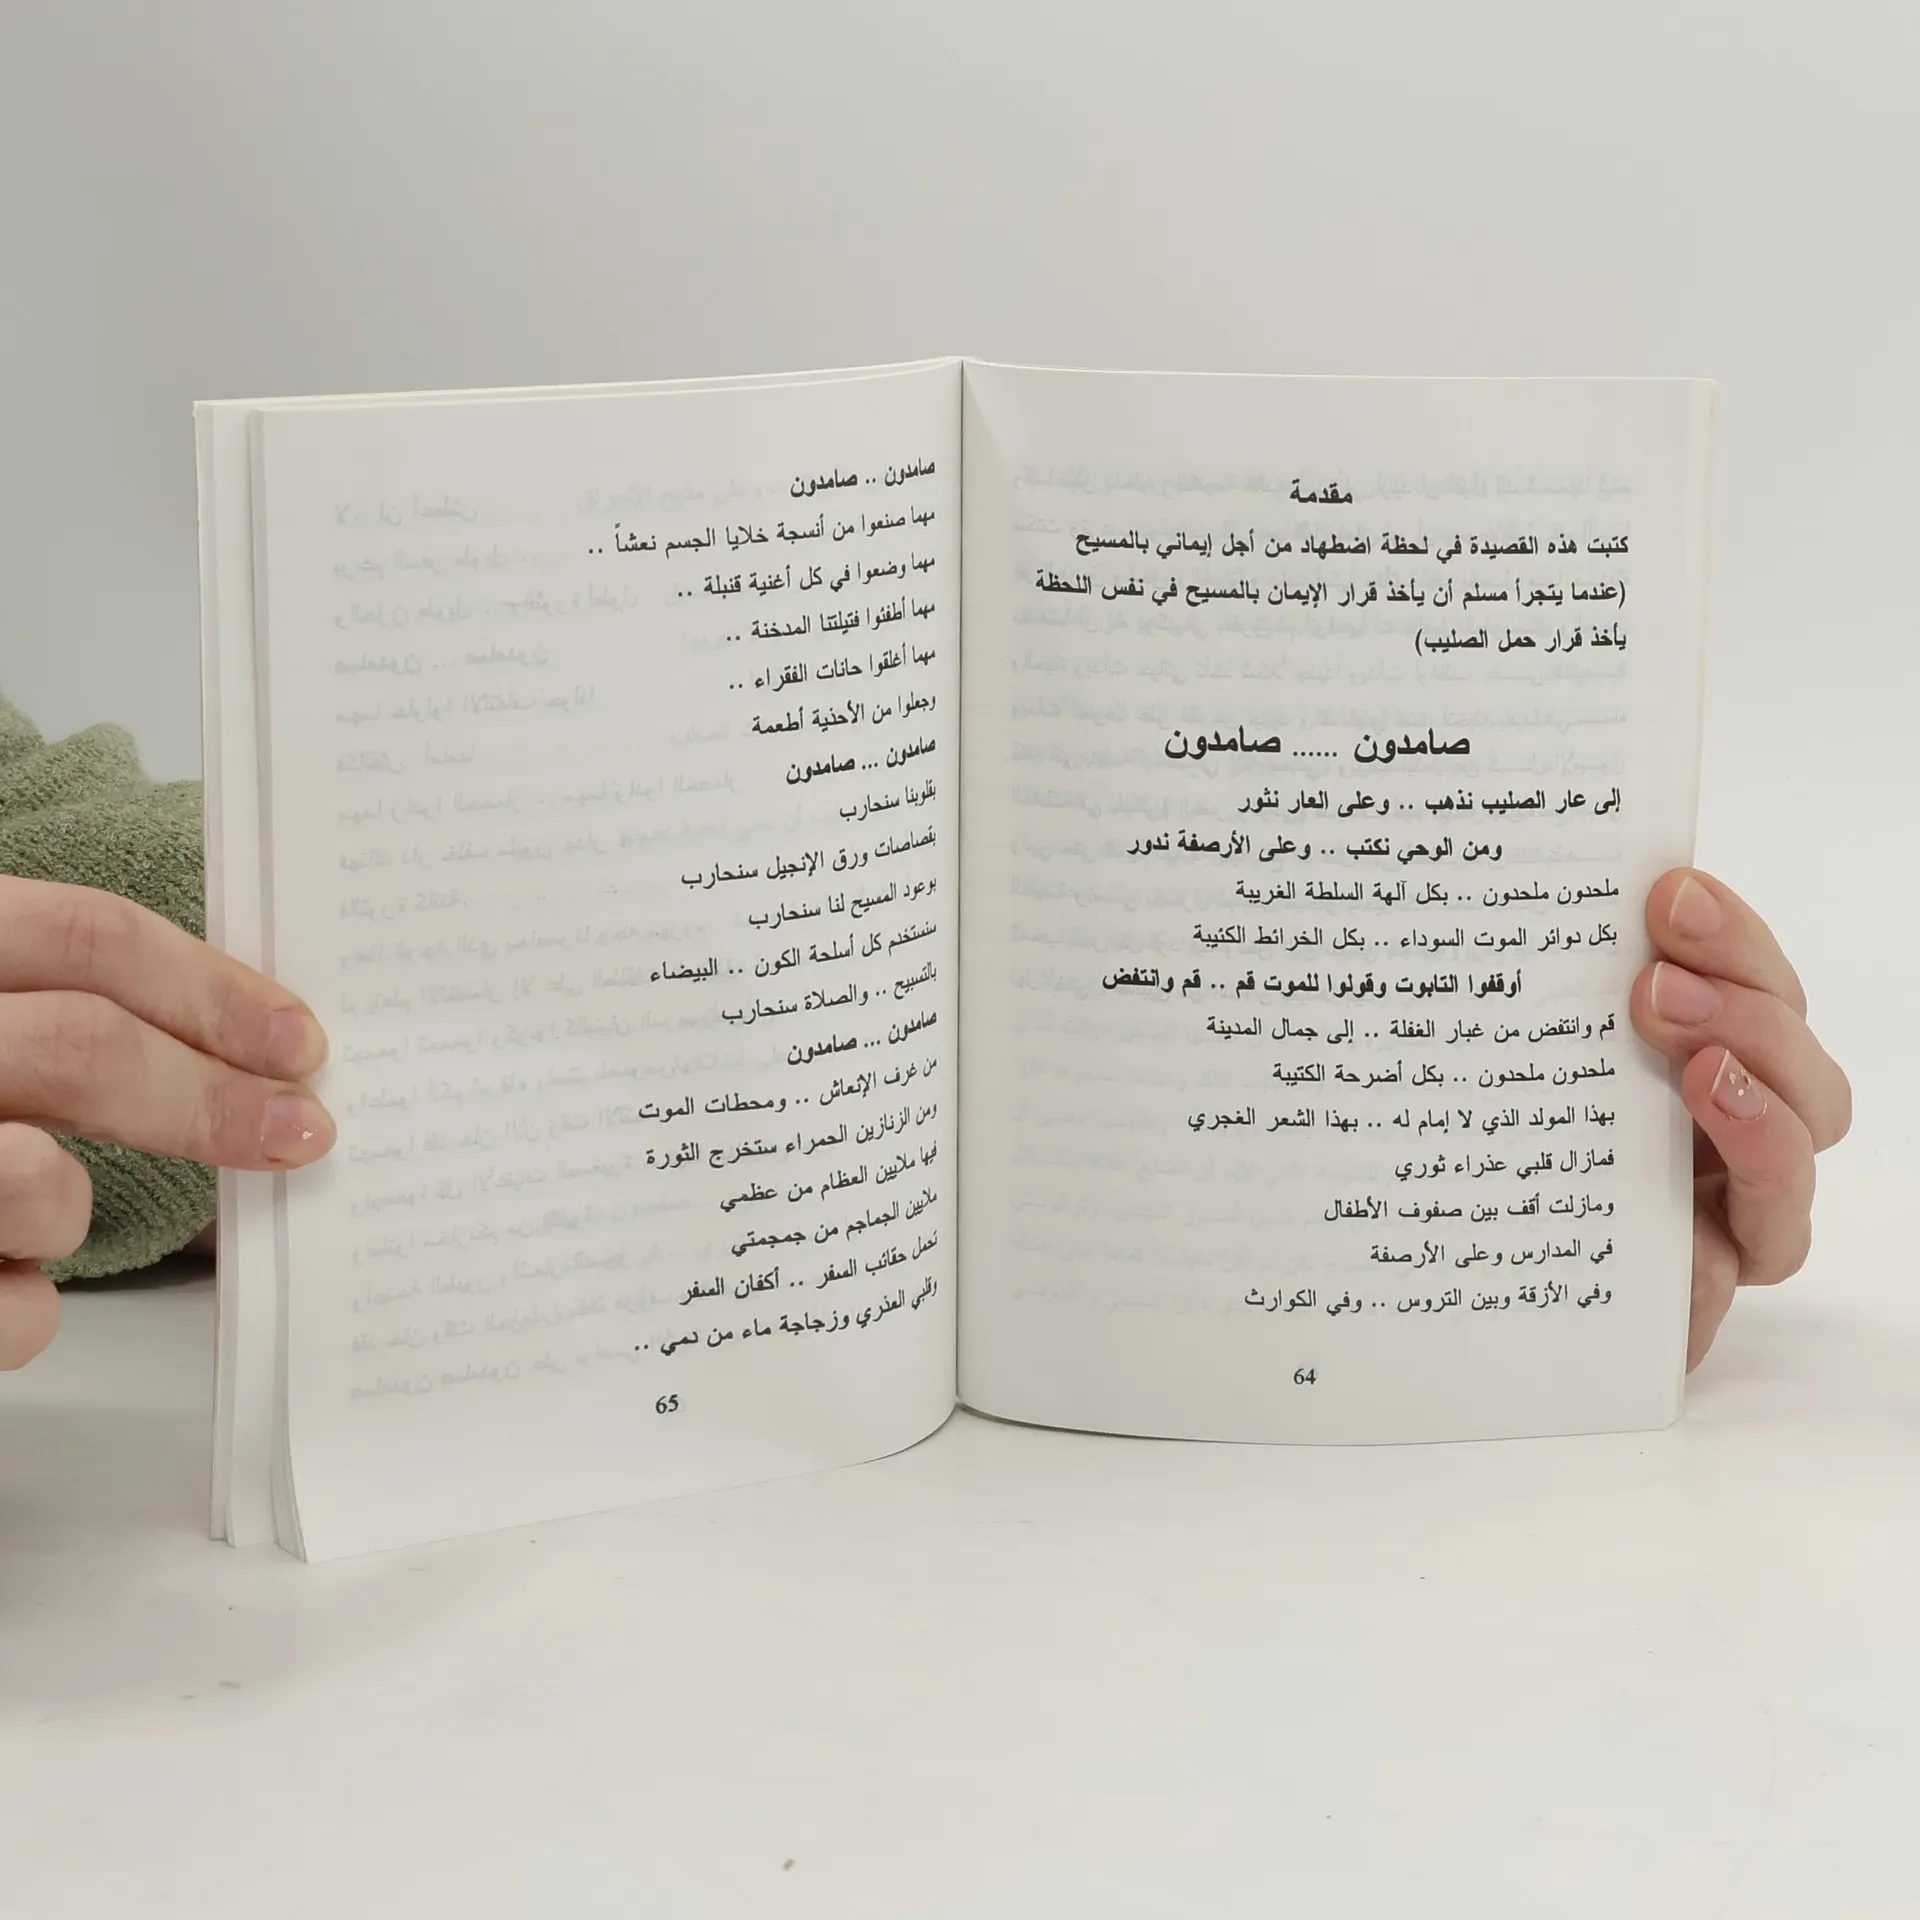 مقدمة
كتبت هذه القصيدة في لحظة اضطهاد من أجل إيماني بالمسيح
(عندما يتجرأ مسلم أن يأخذ قرار الإيمان بالمسيح في نفس اللحظة
يأخذ قرار حمل الصليب)
صامدون ...... صامدون
إلى عار الصليب نذهب .. وعلى العار نثور
ومن الوحي نكتب .. وعلى الأرصفة ندور
ملحدون ملحدون .. بكل آلهة السلطة الغريبة
بكل دوائر الموت السوداء .. بكل الخرائط الكئيبة
أوقفوا التابوت وقولوا للموت قم .. قم وانتفض
قم وانتفض من غبار الغفلة .. إلى جمال المدينة
ملحدون ملحدون .. بكل أضرحة الكتيبة
بهذا المولد الذي لا إمام له .. بهذا الشعر الغجري
فمازال قلبي عذراء ثوري
ومازلت أقف بين صفوف الأطفال
في المدارس وعلى الأرصفة
وفي الأزقة وبين التروس .. وفي الكوارث
64
صامدون .. صامدون
مهما صنعوا من أنسجة خلايا الجسم نعشاً ..
مهما وضعوا في كل أغنية قنبلة ..
مهما أطفئوا فتيلتنا المدخنة ..
مهما أغلقوا حانات الفقراء ..
وجعلوا من الأحذية أطعمة
صامدون ... صامدون
بقلوبنا سنحارب
بقصاصات ورق الإنجيل سنحارب
بوعود المسيح لنا سنحارب
سنستخدم كل أسلحة الكون .. البيضاء
بالتسبيح .. والصلاة سنحارب
صامدون ... صامدون
من غرف الإنعاش .. ومحطات الموت
ومن الزنازين الحمراء ستخرج الثورة
فيها ملايين العظام من عظمي
ملايين الجماجم من جمجمتي
تحمل حقائب السفر .. أكفان السفر
وقلبي العذري وزجاجة ماء من دمي ..
65